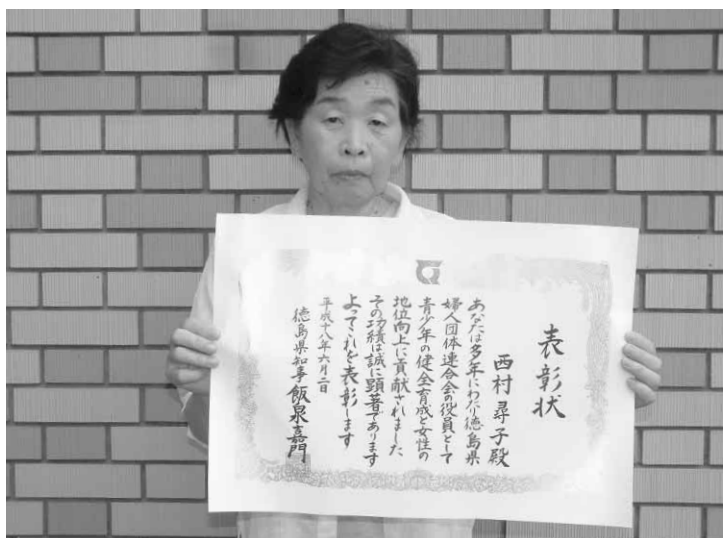 表彰状
西村尋子殿
あなたは多年にわたり徳島県
婦人団体連合会の役員として
青少年の健全育成と女性の
地位向上に貢献されました
その功績は誠に顕著であります
よってこれを表彰します
平成十八年六月二日
徳島県知事 飯泉嘉門